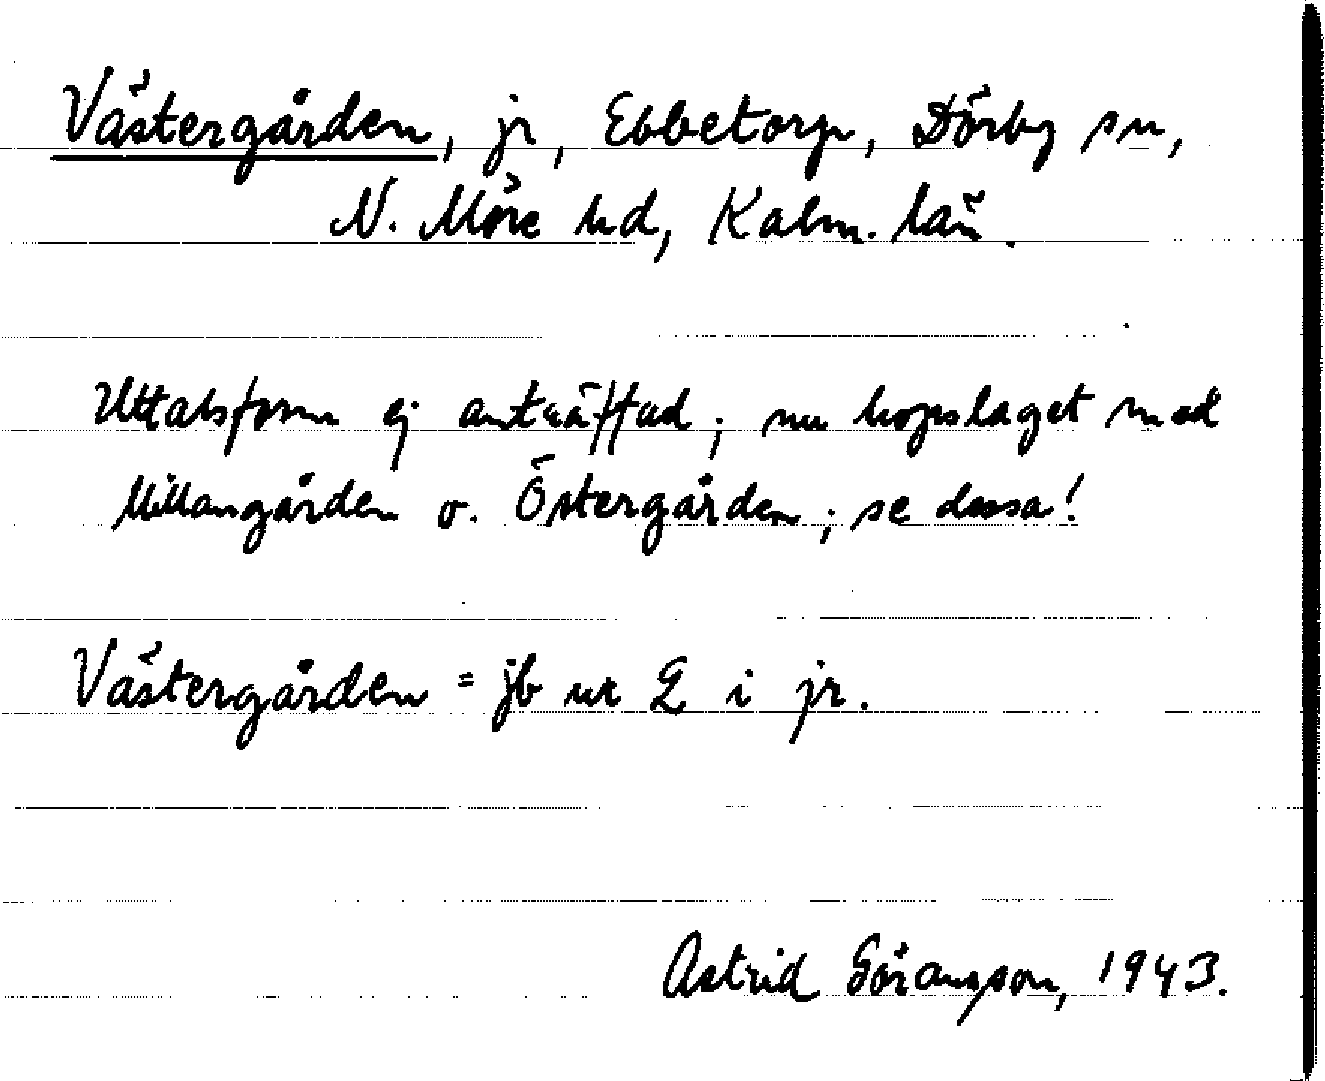 Västergården, jr, Ebbetorp, Dörby sn,
N. Möre hd, Kalm. län.
Uttalsform ej anträffad; nu hopslaget med
Millangården o. Östergården; se dessa!
Västergården = jb nr 2 i jr.
Astrid Göransson, 1943.